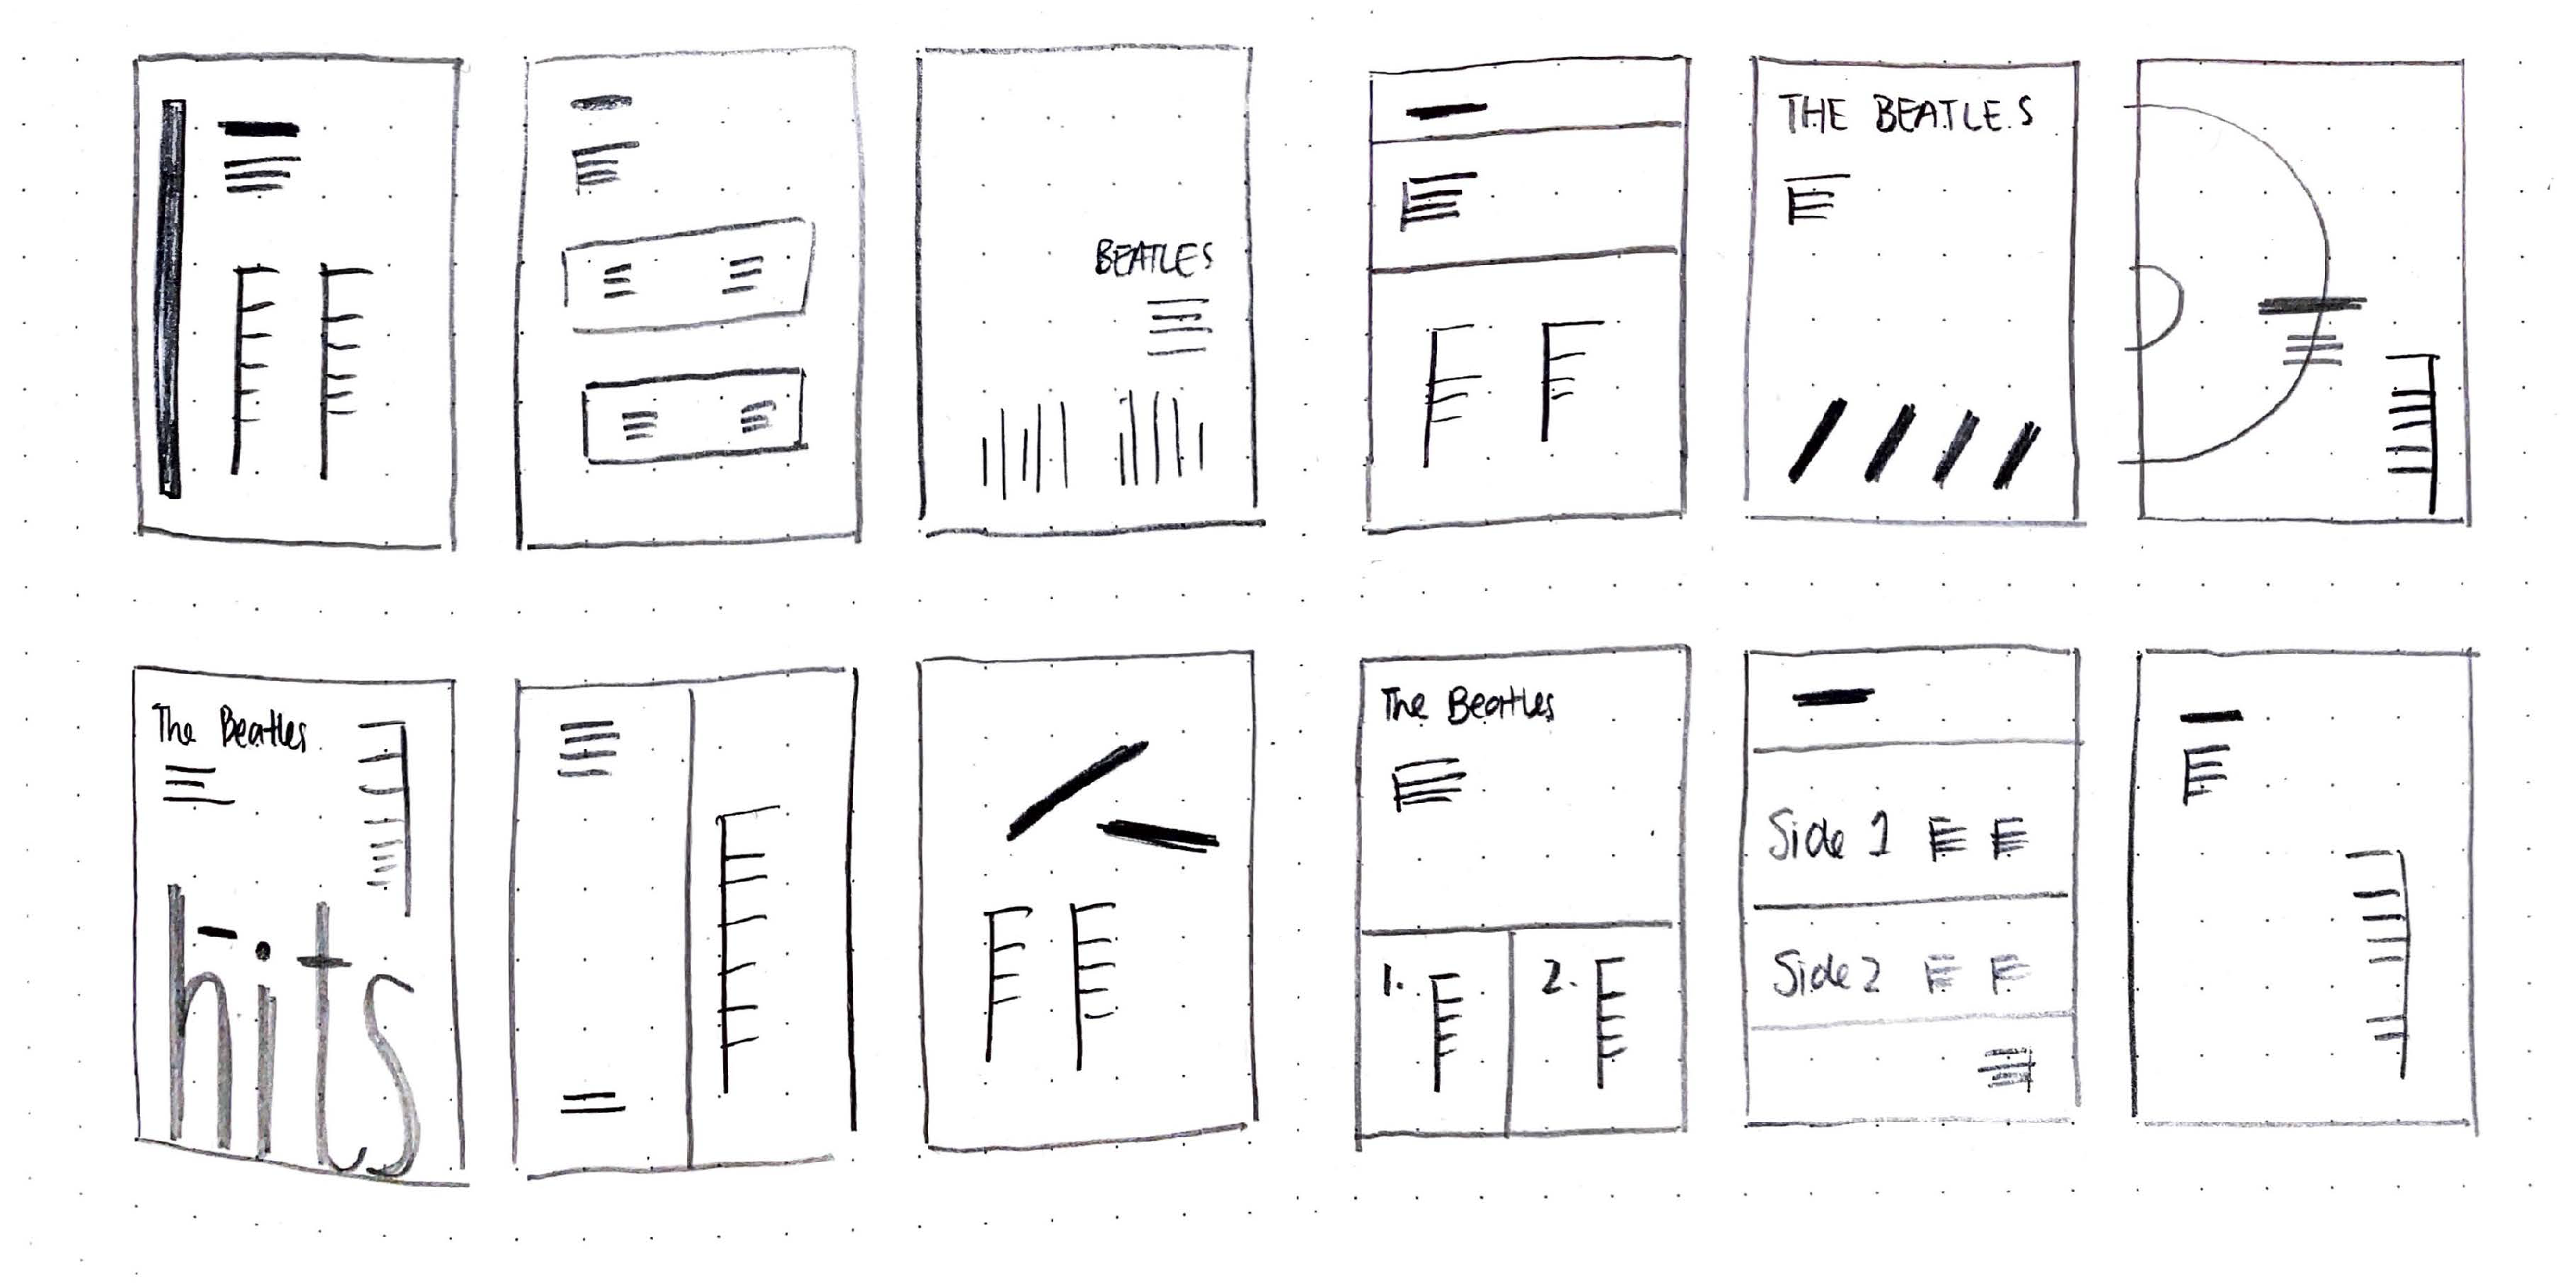 BEATLES
THE BEATLES
The Beatles
hits
The Beatles
1.
2.
Side 1
Side 2